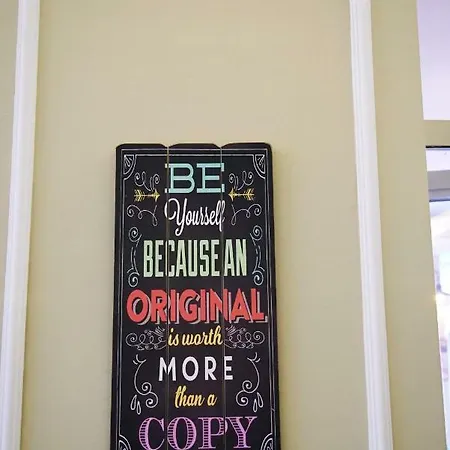 BE
Yourself
BECAUSE AN
ORIGINAL
is worth
MORE
than a
COPY